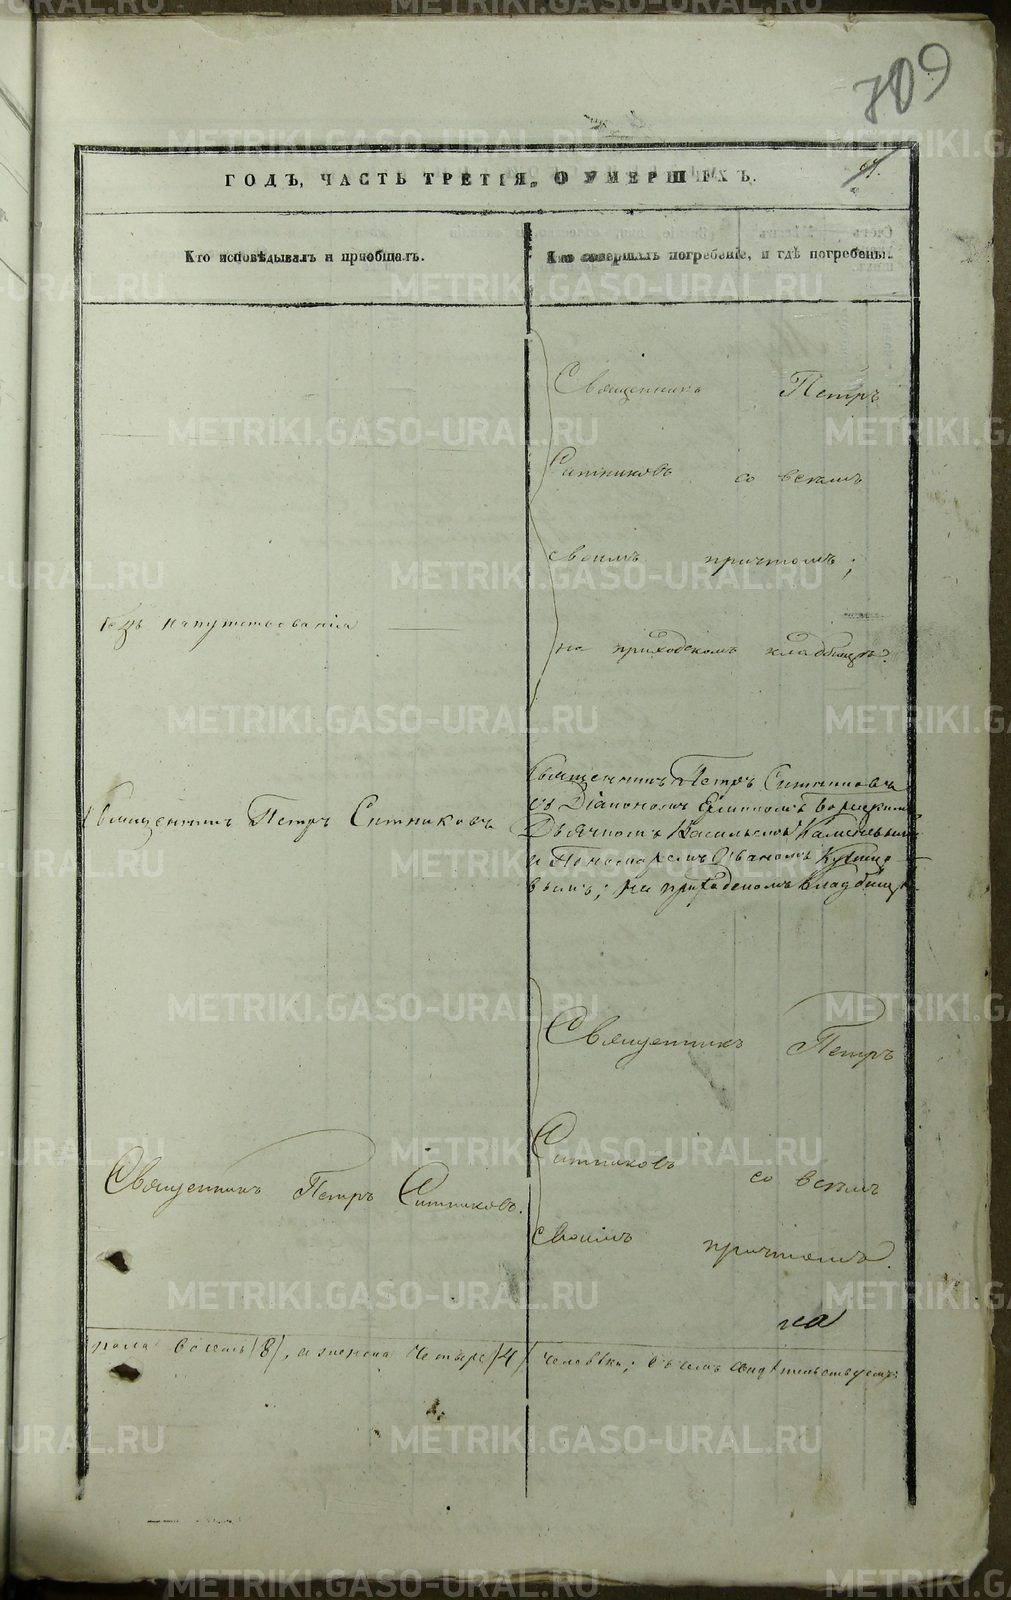 709
ГОДЪ, ЧАСТЬ ТРЕТІЯ, О УМЕРШИХЪ.
Кто исповѣдывалъ и пріобщалъ.
Кто совершалъ погребеніе, и гдѣ погребены.
Священникъ Петръ
Ситниковъ со всѣмъ
своимъ причтомъ;
на приходскомъ кладбищѣ.
безъ напутствованія
Священникъ Петръ Ситниковъ
Священникъ Петръ Ситниковъ
съ Діакономъ
Дьячкомъ Васильемъ
и Пономаремъ Иваномъ
на приходскомъ кладбищѣ
Священникъ Петръ
Ситниковъ со всѣмъ
своимъ причтомъ.
на
Священникъ Петръ Ситниковъ.
пола восемь /8/, а женска четыре /4/ человѣка; въ чемъ свидѣтельствуемъ:
METRIKI.GASO-URAL.RU